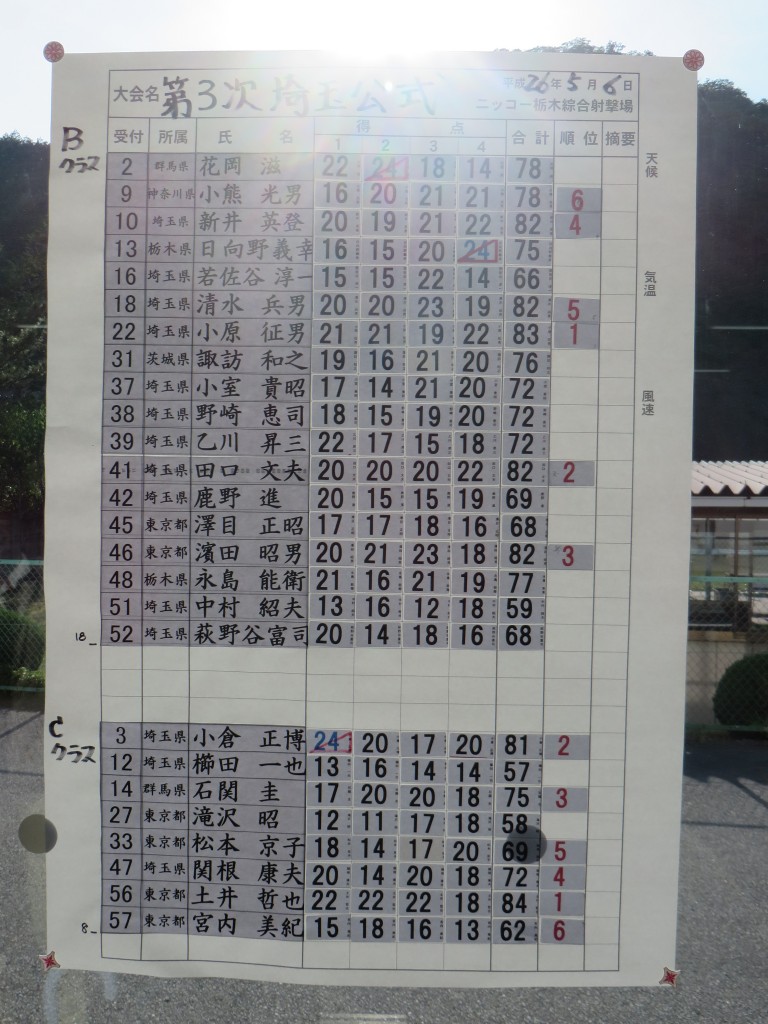 大会名 第3次埼玉公式 平成26年5月6日
ニッコー栃木綜合射撃場
Bクラス
受付 所属 氏 名 得 点 合計 順位 摘要
1 2 3 4
2 群馬県 花岡 滋 22 24 18 14 78
9 神奈川県 小熊 光男 16 20 21 21 78 6
10 埼玉県 新井 英登 20 19 21 22 82 4
13 栃木県 日向野義幸 16 15 20 24 75
16 埼玉県 若佐谷 淳一 15 15 22 14 66
18 埼玉県 清水 兵男 20 20 23 19 82 5
22 埼玉県 小原 征男 21 21 19 22 83 1
31 茨城県 諏訪 和之 19 16 21 20 76
37 埼玉県 小室 貴昭 17 14 21 20 72
38 埼玉県 野崎 恵司 18 15 19 20 72
39 埼玉県 乙川 昇三 22 17 15 18 72
41 埼玉県 田口 文夫 20 20 20 22 82 2
42 埼玉県 鹿野 進 20 15 15 19 69
45 東京都 澤目 正昭 17 17 18 16 68
46 東京都 濱田 昭男 20 21 23 18 82 3
48 栃木県 永島 能衛 21 16 21 19 77
51 埼玉県 中村 紹夫 13 16 12 18 59
18_ 52 埼玉県 萩野谷富司 20 14 18 16 68
Cクラス
3 埼玉県 小倉 正博 24 20 17 20 81 2
12 埼玉県 櫛田 一也 13 16 14 14 57
14 群馬県 石関 圭 17 20 20 18 75 3
27 東京都 滝沢 昭 12 11 17 18 58
33 東京都 松本 京子 18 14 17 20 69 5
47 埼玉県 関根 康夫 20 14 20 18 72 4
56 東京都 土井 哲也 22 22 22 18 84 1
8_ 57 東京都 宮内 美紀 15 18 16 13 62 6
天候
気温
風速